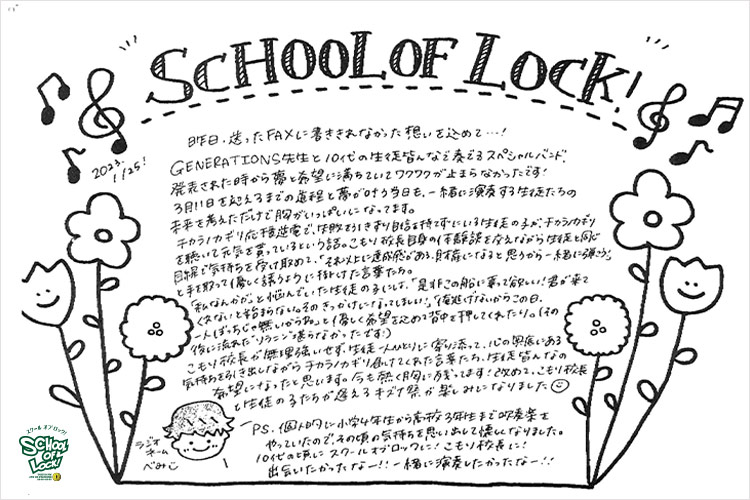 SCHOOL OF LOCK!
2023.
1/25!
昨日、送ったFAXに書ききれなかった想いを込めて…!
GENERATIONS先生と10代の生徒皆んなで奏でるスペシャルバンド、
発表された時から夢と希望に満ちていてワクワクが止まらなかったです!
3月11日を迎えるまでの過程と夢が叶う当日も、一緒に演奏する生徒たちの
未来を考えただけで胸がいっぱいになってます。
チカラノカギリ応援逆電で、失敗を引きずり自信を持てずにいる生徒の子が、チカラノカギリ
を聴いて元気を貰っているという話。こもり校長自身の体験談を交えながら生徒と同じ
目線で気持ちを受け取めて、「それ以上に達成感がある。財産になると思うから一緒に弾こう」
と手を取って優しく誘うように掛けた言葉たち。
「私なんかが」と悩んでいた生徒の子には、「是非この船に乗って欲しい!君が来て
くれないと始まらない。そのきっかけになってほしい」、「俺逃げないからこの日、
一人ぼっちじゃ無いからね」と優しく希望を込めて背中を押してくれたり。(その
後に流れた"ソラニン"堪らなかったです:)
こもり校長が無理強いせず、生徒一人ひとりに寄り添って、心の奥底にある
気持ちを引き出しながらチカラノカギリ届けてくれた言葉たち、生徒皆んなの
希望になったと思います。今も熱く胸に残ってます!改めて、こもり校長
と生徒の子たちが迎えるキズナ祭が楽しみになりました
ラジオ
ネーム
べみこ
PS.個人的に小学4年生から高校3年生まで吹奏楽を
やっていたので、その頃の気持ちを思い出して懐しくなりました。
10代の頃に スクールオブロックに!こもり校長に!
出会いたかったなー!!一緒に演奏したかったなー!!
スクールオブロック!
SCHOOL
OF
LOCK!